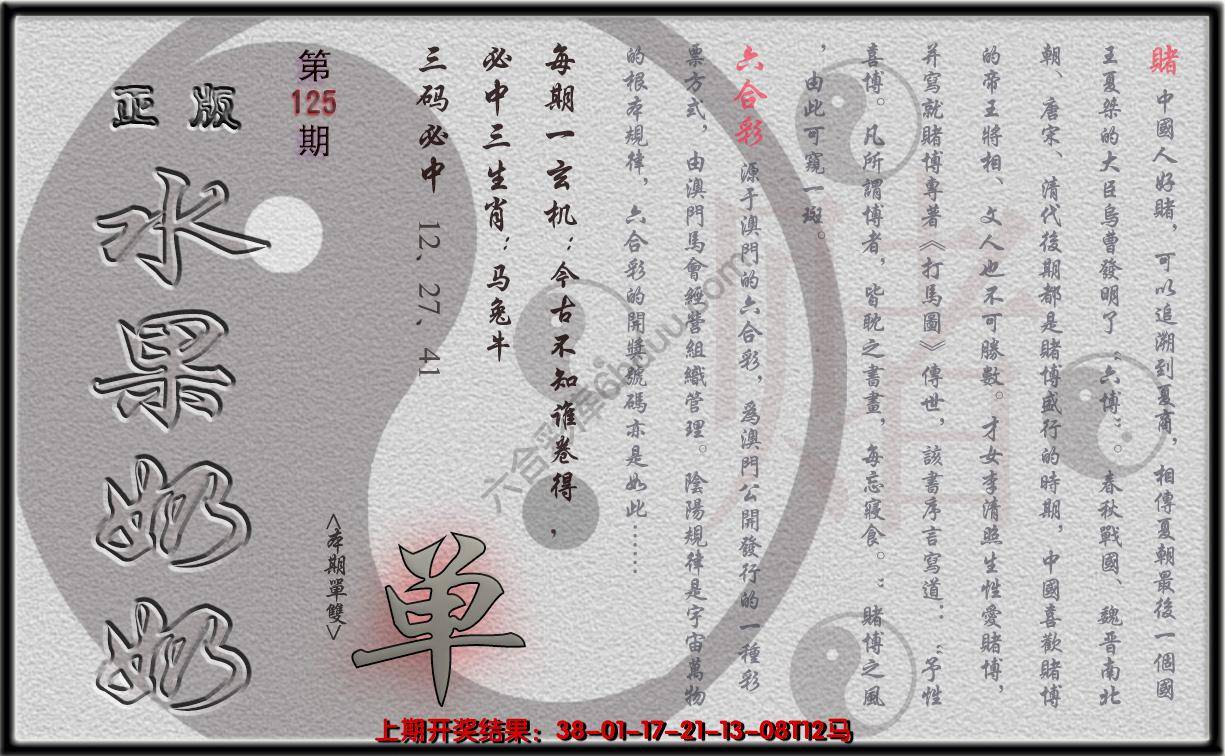 賭 中國人好賭，可以追溯到夏商，相傳夏朝最後一個國
王夏桀的大臣烏曹發明了“六博”。春秋戰國、魏晋南北
朝、唐宋、清代後期都是賭博盛行的時期，中國喜歡賭博
的帝王將相、文人也不可勝數。才女李清照生性愛賭博，
并寫就賭博專著《打馬圖》傳世，該書序言寫道：“予性
喜博。凡所謂博者，皆耽之書晝，每忘寢食。”賭博之風
，由此可窺一斑。
六合彩 源于澳門的六合彩，爲澳門公開發行的一種彩
票方式，由澳門馬會經營組織管理。陰陽規律是宇宙萬物
的根本規律，六合彩的開獎號碼亦是如此……
每期一玄机：今古不知谁卷得，
必中三生肖：马兔牛
三码必中 12、27、41
第
125
期
正版
水果奶奶
<本期單雙>
单
六合彩库6huuu.com
上期开奖结果：38-01-17-21-13-08T12马